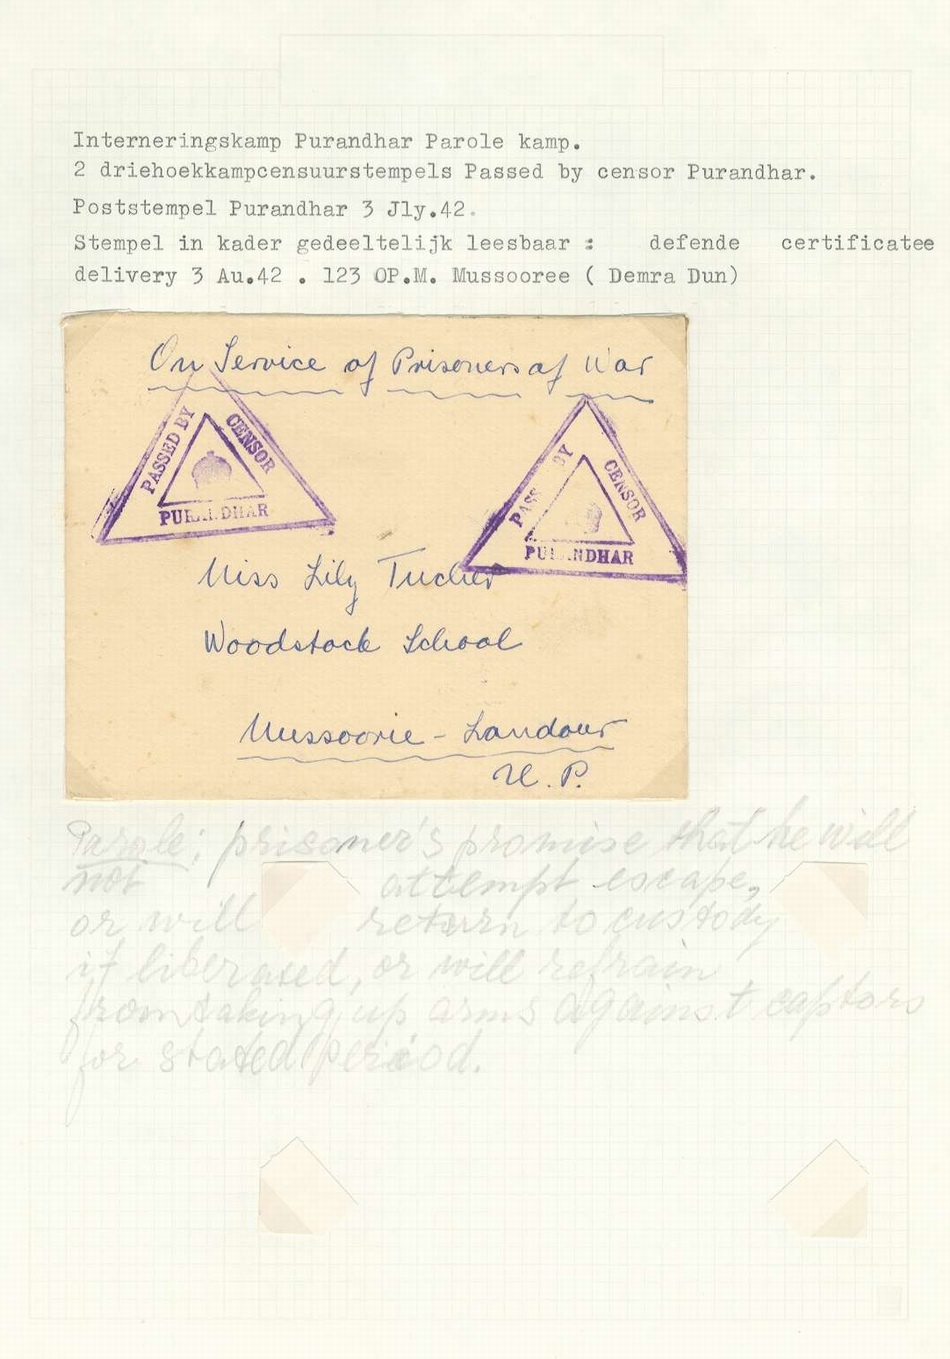 Interneringskamp Purandhar Parole kamp.
2 driehoekkampcensuurstempels Passed by censor Purandhar.
Poststempel Purandhar 3 Jly.42.
Stempel in kader gedeeltelijk leesbaar : defende certificatee
delivery 3 Au.42 . 123 OP.M. Mussooree ( Demra Dun)
On Service of Prisoners of War
PASSED BY CENSOR
PURANDHAR
PASSED BY CENSOR
PURANDHAR
Miss Lily Tucher
Woodstock School
Mussoorie - Landour
U. P.
Parole; prisoner's promise that he will
not attempt escape,
or will return to custody
if liberased, or will refrain
from taking up arms against captors
for stated period.